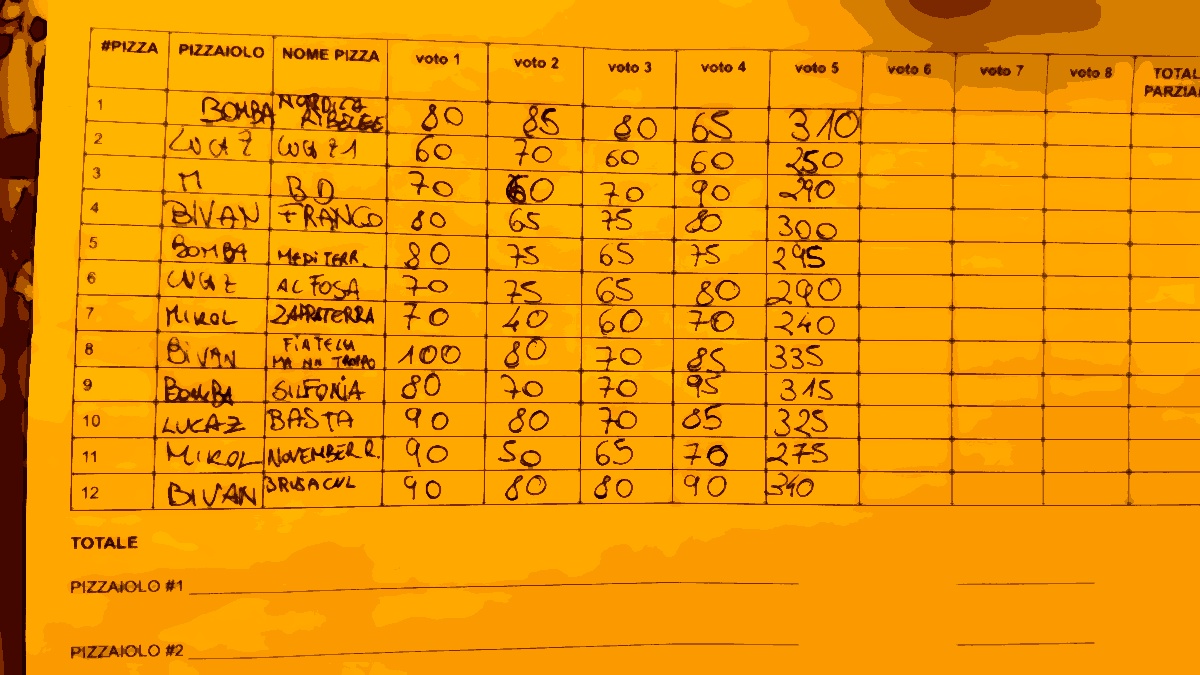 #PIZZA PIZZAIOLO NOME PIZZA voto 1 voto 2 voto 3 voto 4 voto 5 voto 6 voto 7 voto 8 TOTAL PARZIAL
1 BOMBA NORDICA 80 85 80 65 310
2 LUCAZ LUCAZ1 60 70 60 60 250
3 M BD 70 60 70 90 290
4 BIVAN FRANCO 80 65 75 80 300
5 BOMBA MEDITERR. 80 75 65 75 295
6 LUCAZ AL FOSA 70 75 65 80 290
7 MIROL ZAPPATERRA 70 40 60 70 240
8 BIVAN MA NN TROPPO 100 80 70 85 335
9 BOMBA SINFONIA 80 70 70 95 315
10 LUCAZ BASTA 90 80 70 85 325
11 MIROL NOVEMBER R. 90 50 65 70 275
12 BIVAN BRUSACUL 90 80 80 90 340
TOTALE
PIZZAIOLO #1
PIZZAIOLO #2